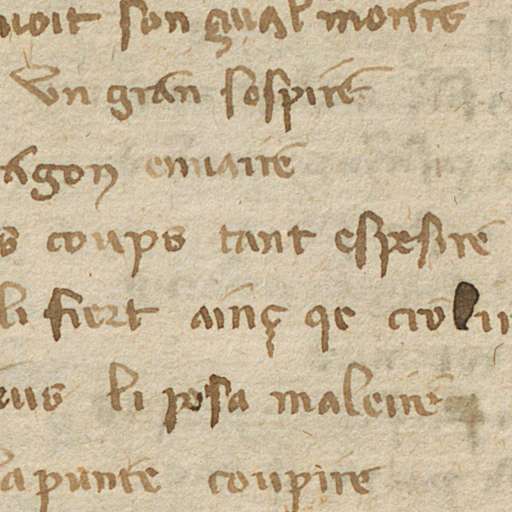 uoit son gual morire
Un gran sospire
ragon enuaire
s coups tant espesire
li fiert ainç qe cro lir
eus li pesa maleire
apunte coupire